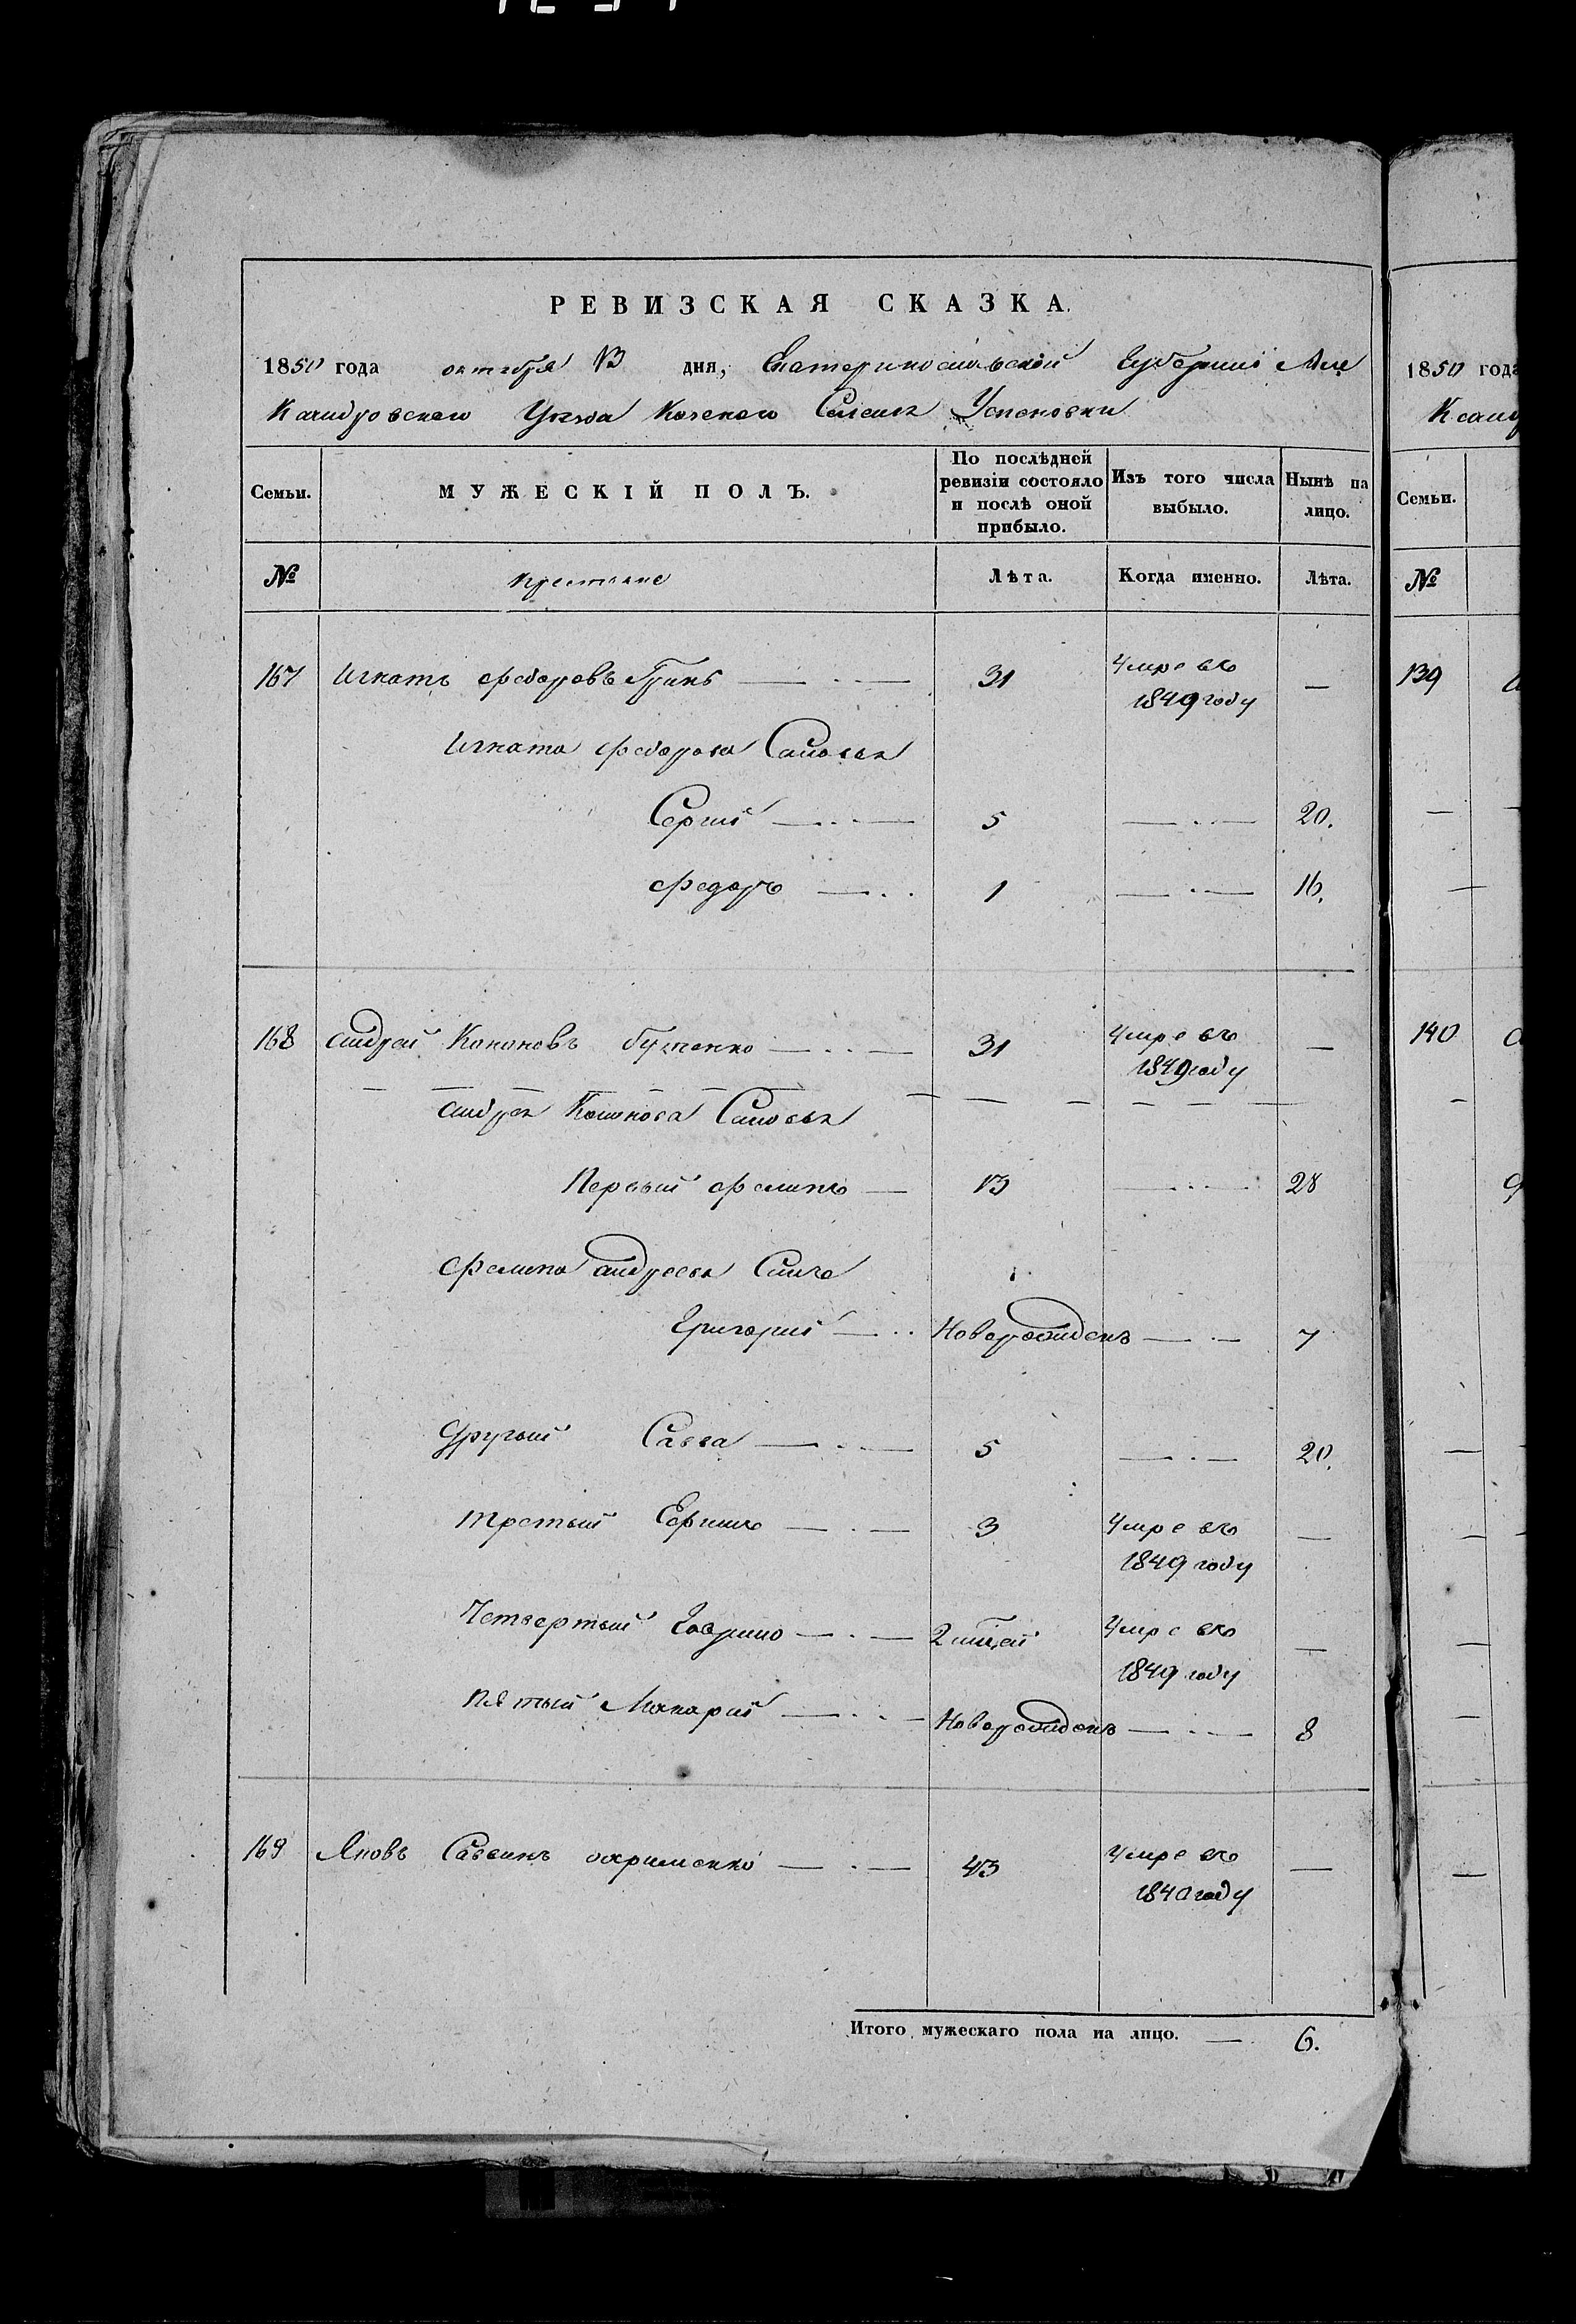 РЕВИЗСКАЯ СКАЗКА.
1850 года октября 13 дня, Екатеринославской Губернии Але
ксандровскаго Уезда Казенаго Селенія Успеновки
Семьи. МУЖЕСКІЙ ПОЛЪ. По послѣдней ревизіи состояло и послѣ оной прибыло. Изъ того числа выбыло. Нынѣ на лицо.
№ крестьяне Лѣта. Когда именно. Лѣта.
167 Игнатъ Федоровъ Гринь — 31 Умре въ 1849 году —
Игната Федорова Сыновья
Сергий — 5 — 20.
Федоръ — 1 — 16.
168 Андрей Кононовъ Бутенко — 31 Умре въ 1849 году —
Андрея Кононова Сыновья
Первый Филипъ — 13 — 28
Филипа Андреева Сынъ
Григорий — Новорожденъ — 7
Другий Савва — 5 — 20.
Третый Ефимъ — 3 Умре въ 1849 году —
Четвертый Гаврило — Умре въ 1849 году —
Пятый Макарий — Новорожденъ — 8
169 Яковъ Саввинъ Охрименко — 43 Умре въ 1840 году —
Итого мужескаго пола на лицо. — 6.
1850 года
Ксандр
Семьи.
№
139
140